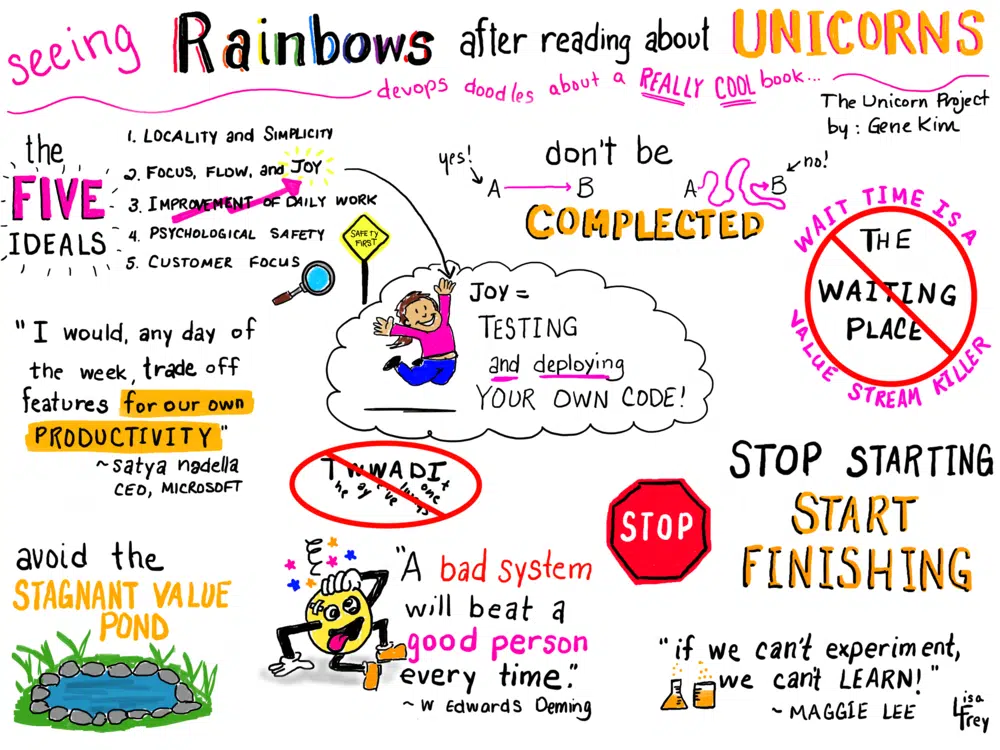 seeing Rainbows after reading about UNICORNS
devops doodles about a REALLY COOL book...
The Unicorn Project
by: Gene Kim
the
FIVE
IDEALS
1. LOCALITY and SIMPLICITY
2. FOCUS, FLOW, and JOY
3. IMPROVEMENT OF DAILY WORK
4. PSYCHOLOGICAL SAFETY
5. CUSTOMER FOCUS
SAFETY
FIRST
don't be
yes!
A B
A B
no!
COMPLECTED
WAIT TIME IS A
THE
WAITING
PLACE
VALUE STREAM KILLER
JOY =
TESTING
and deploying
YOUR OWN CODE!
"I would, any day of
the week, trade off
features for our own
PRODUCTIVITY"
~satya nadella
CEO, MICROSOFT
The Way We've Always Done It
STOP
STOP STARTING
START
FINISHING
avoid the
STAGNANT VALUE
POND
"A bad system
will beat a
good person
every time."
~ W Edwards Deming
"if we can't experiment,
we can't LEARN!"
~ MAGGIE LEE
Lisa
Frey